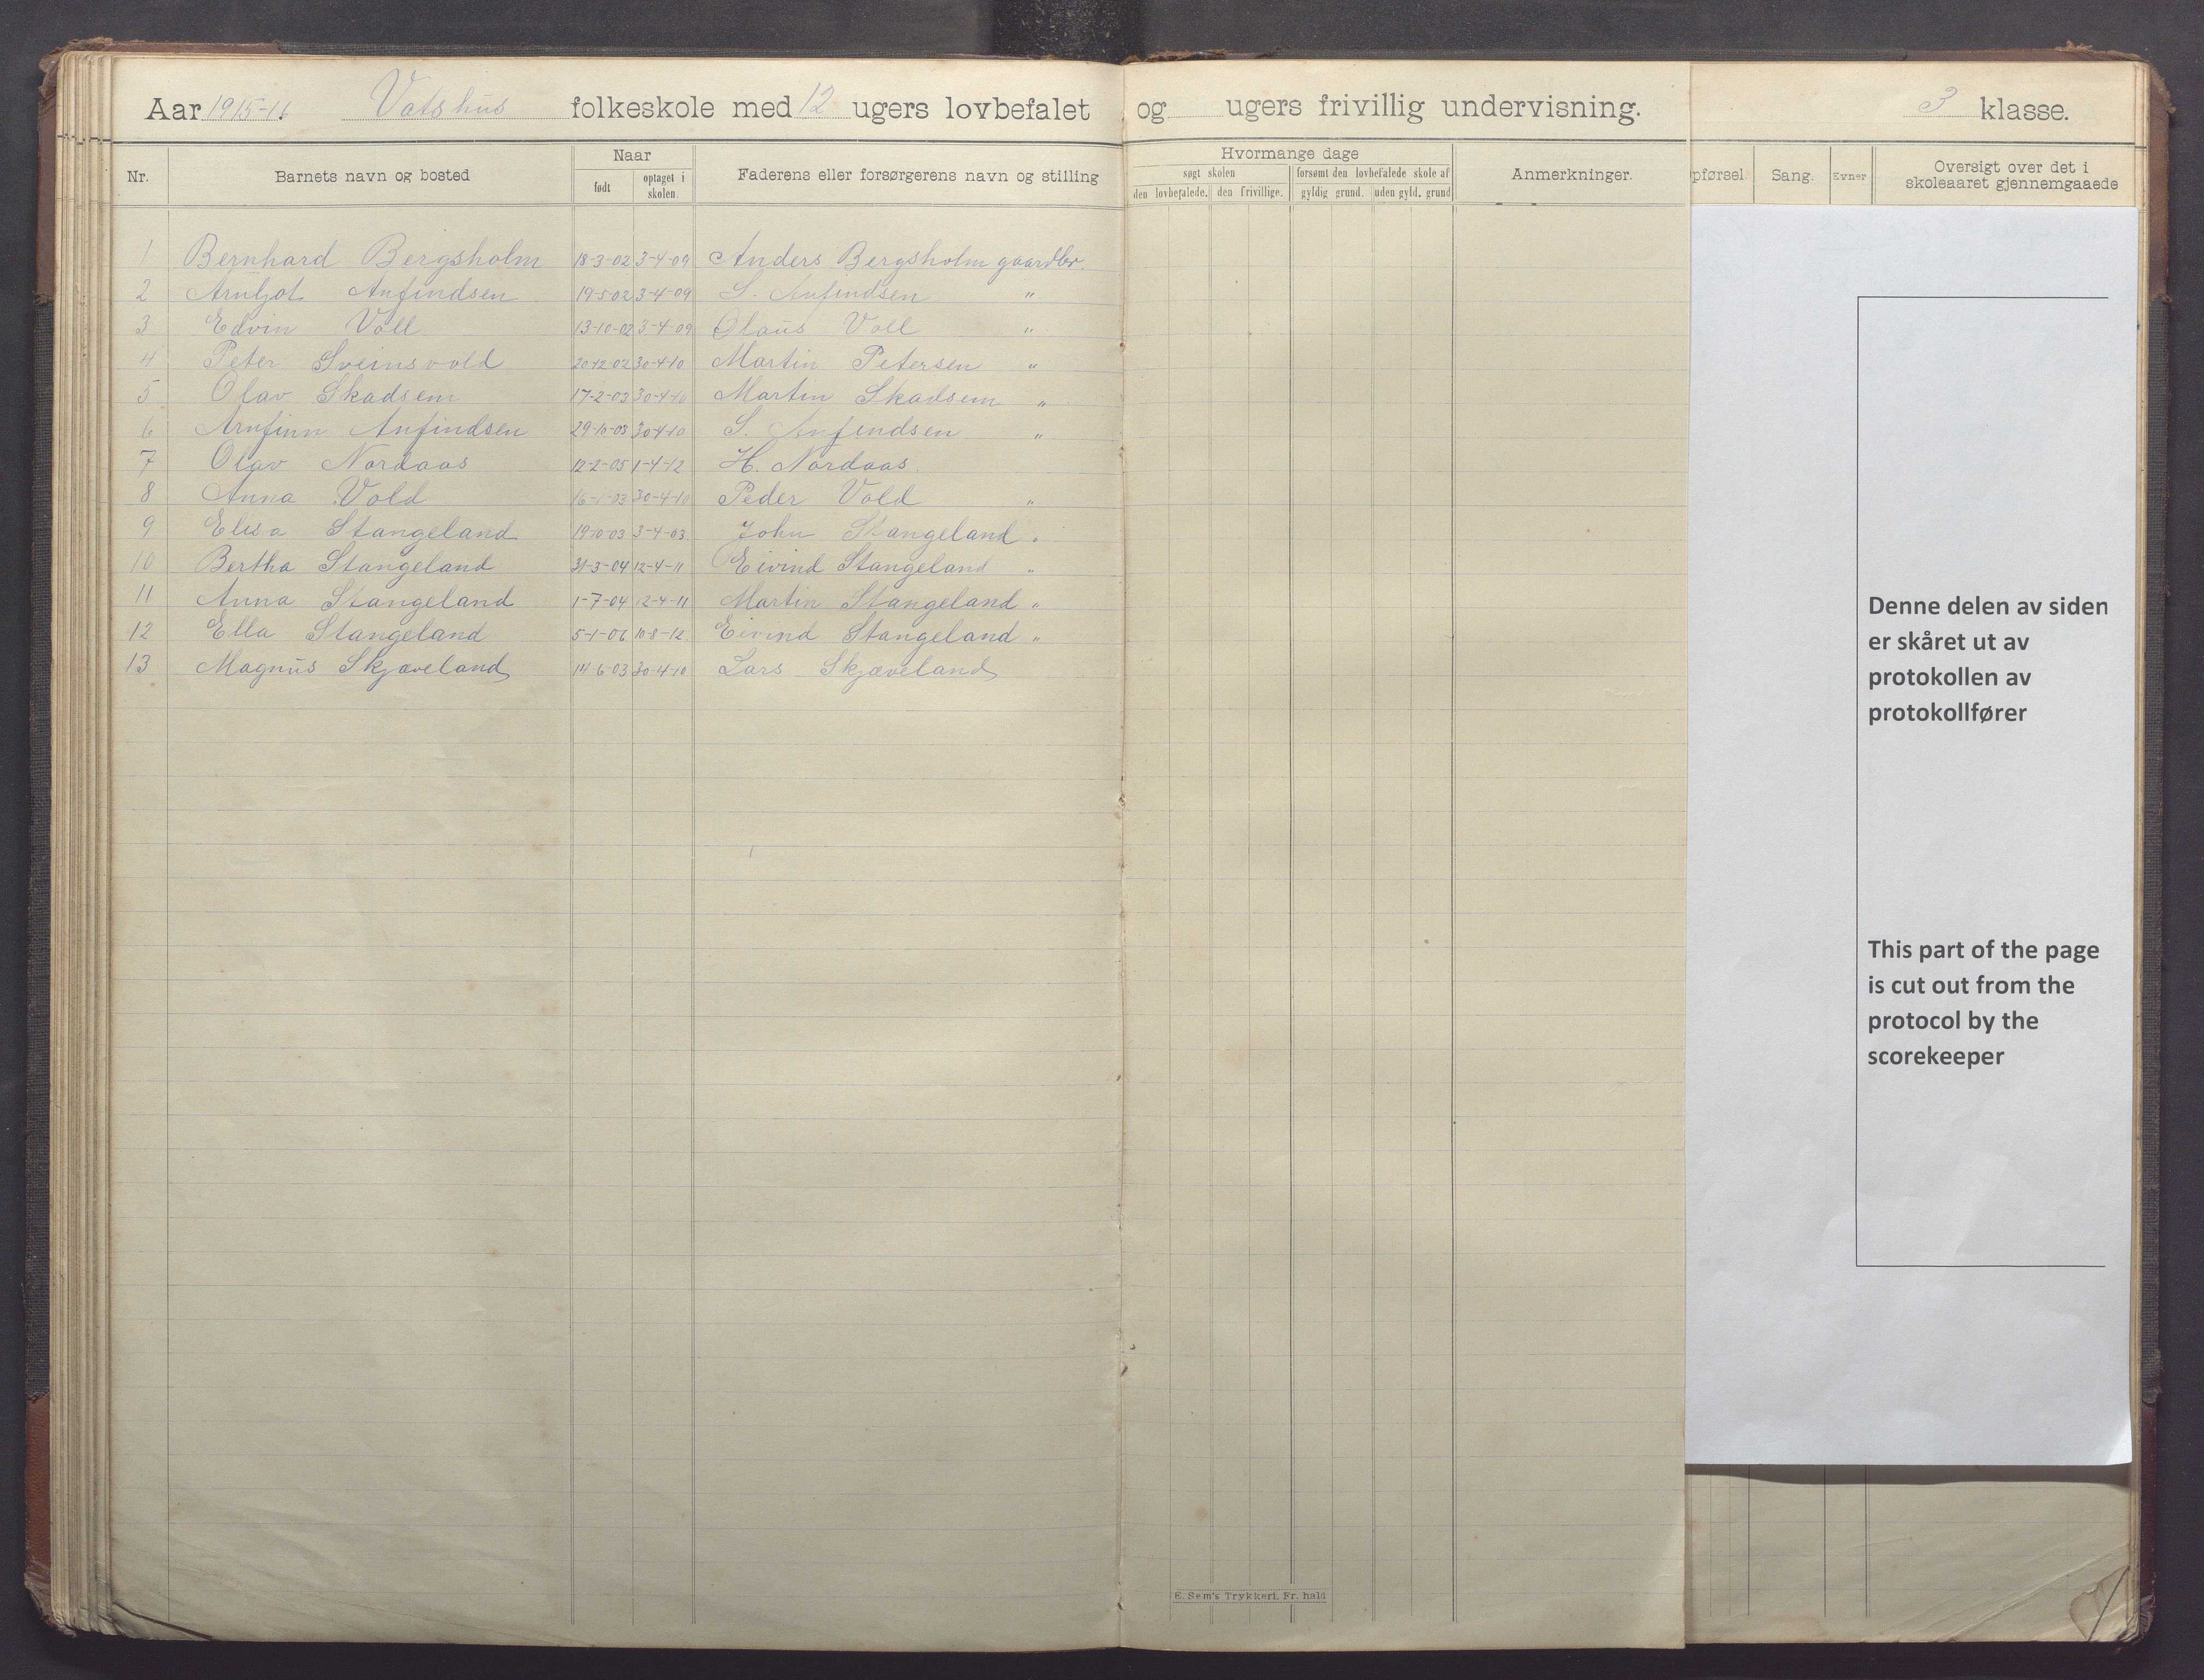 Aar 1915-16. Vatshus folkeskole med 12 ugers lovbefalet og ugers frivillig undervisning. 3 klasse.
Nr. Barnets navn og bosted Naar født optaget i skolen. Faderens eller forsørgerens navn og stilling Hvormange dage søgt skolen den lovbefalede. den frivillige. forsømt den lovbefalede skole af gyldig grund. uden gyld. grund Anmerkninger. pførsel. Sang. Evner Oversigt over det i skoleaaret gjennemgaaede
1 Bernhard Bergsholm 18-3-02 3-4-09 Anders Bergsholm gaardbr.
2 Arnljot Anfindsen 19-5-02 3-4-09 S. Anfindsen "
3 Edvin Voll 13-10-02 3-4-09 Olaus Voll "
4 Peter Sveinsvold 20-12-02 30-4-10 Martin Petersen "
5 Olav Skadsem 17-2-03 30-4-10 Martin Skadsem "
6 Arnfinn Anfindsen 29-10-03 30-4-10 S. Anfindsen "
7 Olav Nordaas 12-2-05 1-4-12 H. Nordaas
8 Anna Vold 16-1-03 30-4-10 Peder Vold "
9 Elisa Stangeland 19-10-03 3-4-03. John Stangeland "
10 Bertha Stangeland 31-3-04 12-4-11 Eivind Stangeland "
11 Anna Stangeland 1-7-04 12-4-11 Martin Stangeland "
12 Ella Stangeland 5-1-06 10-8-12. Eivind Stangeland "
13 Magnus Skjæveland 14-6-03 30-4-10 Lars Skjæveland
Denne delen av siden
er skåret ut av
protokollen av
protokollfører
This part of the page
is cut out from the
protocol by the
scorekeeper
E. Sem's Trykkeri, Fr. hald